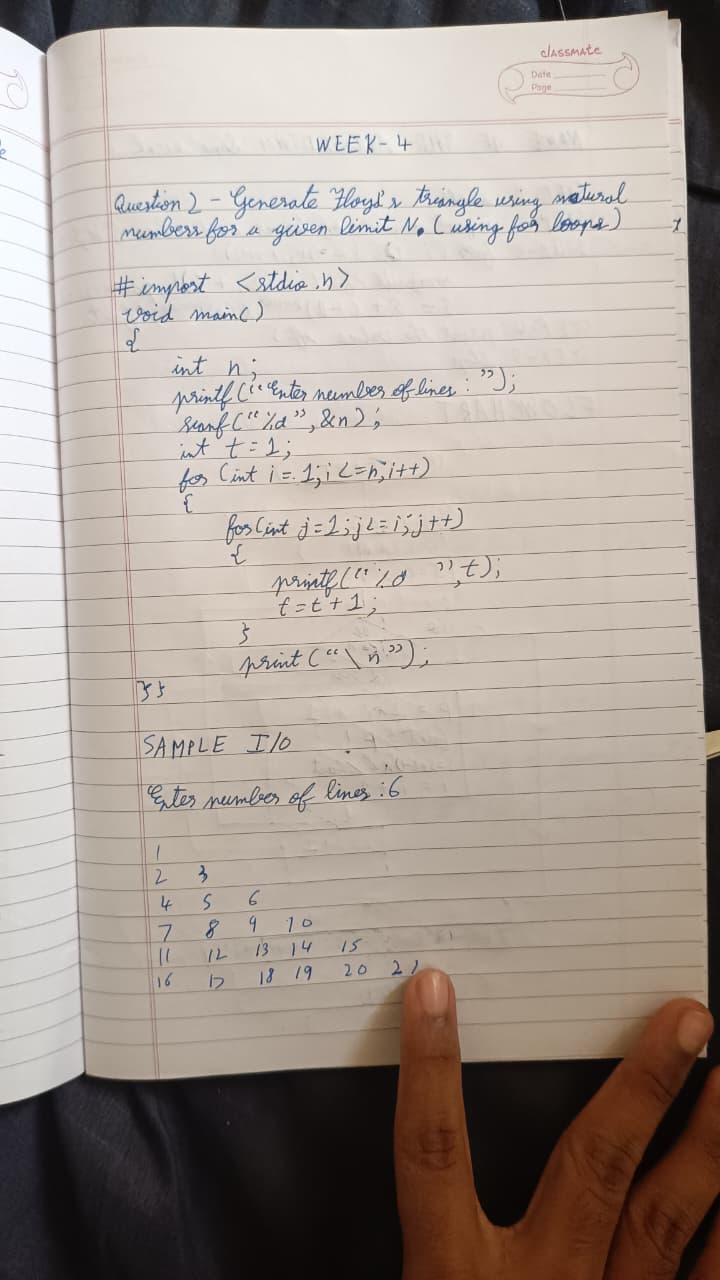 classmate
Date
Page
WEEK-4
Question 2 - Generate Floyd's triangle using natural
numbers for a given limit N. (using for loops)
#import <stdio.h>
void main()
{
int n;
printf("Enter number of lines : ");
scanf("%d", &n);
int t = 1;
for (int i = 1; i <= n; i++)
{
for(int j = 1; j <= i; j++)
{
printf("%d ", t);
t = t + 1;
}
print("\n");
}}
SAMPLE I/O
Enter number of lines : 6
1
2 3
4 5 6
7 8 9 10
11 12 13 14 15
16 17 18 19 20 21